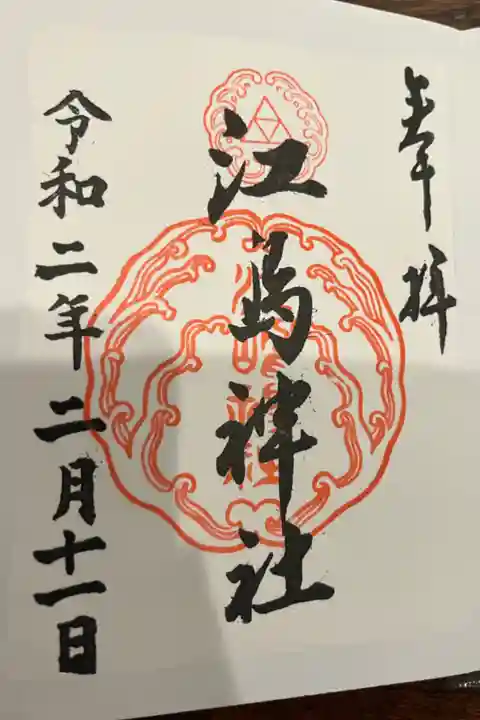 奉拝
江島神社
令和二年二月十一日